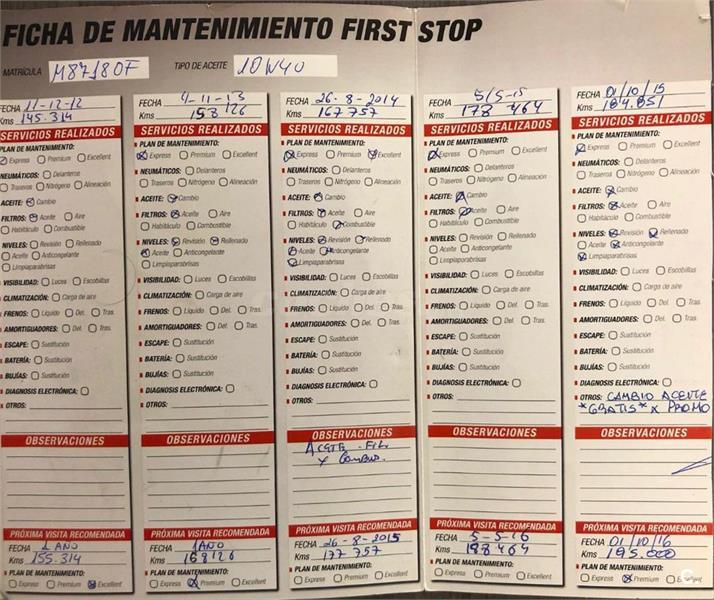 FICHA DE MANTENIMIENTO FIRST STOP
MATRÍCULA M8718OF TIPO DE ACEITE 10W40
FECHA 11-12-12
Kms 145.314
SERVICIOS REALIZADOS
PLAN DE MANTENIMIENTO:
Express Premium Excellent
NEUMÁTICOS: Delanteros
Traseros Nitrógeno Alineación
ACEITE: Cambio
FILTROS: Aceite Aire
Habitáculo Combustible
NIVELES: Revisión Rellenado
Aceite Anticongelante
Limpiaparabrisas
VISIBILIDAD: Luces Escobillas
CLIMATIZACIÓN: Carga de aire
FRENOS: Líquido Del. Tras.
AMORTIGUADORES: Del. Tras.
ESCAPE: Sustitución
BATERÍA: Sustitución
BUJÍAS: Sustitución
DIAGNOSIS ELECTRÓNICA:
OTROS:
OBSERVACIONES
PRÓXIMA VISITA RECOMENDADA
FECHA 1 AÑO
Kms 155.314
PLAN DE MANTENIMIENTO:
Express Premium Excellent
FECHA 4-11-13
Kms 158126
SERVICIOS REALIZADOS
PLAN DE MANTENIMIENTO:
Express Premium Excellent
NEUMÁTICOS: Delanteros
Traseros Nitrógeno Alineación
ACEITE: Cambio
FILTROS: Aceite Aire
Habitáculo Combustible
NIVELES: Revisión Rellenado
Aceite Anticongelante
Limpiaparabrisas
VISIBILIDAD: Luces Escobillas
CLIMATIZACIÓN: Carga de aire
FRENOS: Líquido Del. Tras.
AMORTIGUADORES: Del. Tras.
ESCAPE: Sustitución
BATERÍA: Sustitución
BUJÍAS: Sustitución
DIAGNOSIS ELECTRÓNICA:
OTROS:
OBSERVACIONES
PRÓXIMA VISITA RECOMENDADA
FECHA 1AÑO
Kms 168126
PLAN DE MANTENIMIENTO:
Express Premium Excellent
FECHA 26-8-2014
Kms 167757
SERVICIOS REALIZADOS
PLAN DE MANTENIMIENTO:
Express Premium Excellent
NEUMÁTICOS: Delanteros
Traseros Nitrógeno Alineación
ACEITE: Cambio
FILTROS: Aceite Aire
Habitáculo Combustible
NIVELES: Revisión Rellenado
Aceite Anticongelante
Limpiaparabrisas
VISIBILIDAD: Luces Escobillas
CLIMATIZACIÓN: Carga de aire
FRENOS: Líquido Del. Tras.
AMORTIGUADORES: Del. Tras.
ESCAPE: Sustitución
BATERÍA: Sustitución
BUJÍAS: Sustitución
DIAGNOSIS ELECTRÓNICA:
OTROS:
OBSERVACIONES
PRÓXIMA VISITA RECOMENDADA
FECHA 26-8-2015
Kms 177757
PLAN DE MANTENIMIENTO:
Express Premium Excellent
FECHA 5/5-15
Kms 178464
SERVICIOS REALIZADOS
PLAN DE MANTENIMIENTO:
Express Premium Excellent
NEUMÁTICOS: Delanteros
Traseros Nitrógeno Alineación
ACEITE: Cambio
FILTROS: Aceite Aire
Habitáculo Combustible
NIVELES: Revisión Rellenado
Aceite Anticongelante
Limpiaparabrisas
VISIBILIDAD: Luces Escobillas
CLIMATIZACIÓN: Carga de aire
FRENOS: Líquido Del. Tras.
AMORTIGUADORES: Del. Tras.
ESCAPE: Sustitución
BATERÍA: Sustitución
BUJÍAS: Sustitución
DIAGNOSIS ELECTRÓNICA:
OTROS:
OBSERVACIONES
PRÓXIMA VISITA RECOMENDADA
FECHA 5-5-16
Kms 188464
PLAN DE MANTENIMIENTO:
Express Premium Excellent
FECHA 01/10/15
Kms 184.851
SERVICIOS REALIZADOS
PLAN DE MANTENIMIENTO:
Express Premium Excellent
NEUMÁTICOS: Delanteros
Traseros Nitrógeno Alineación
ACEITE: Cambio
FILTROS: Aceite Aire
Habitáculo Combustible
NIVELES: Revisión Rellenado
Aceite Anticongelante
Limpiaparabrisas
VISIBILIDAD: Luces Escobillas
CLIMATIZACIÓN: Carga de aire
FRENOS: Líquido Del. Tras.
AMORTIGUADORES: Del. Tras.
ESCAPE: Sustitución
BATERÍA: Sustitución
BUJÍAS: Sustitución
DIAGNOSIS ELECTRÓNICA:
OTROS: CAMBIO ACEITE
*GRATIS* x PROMO
OBSERVACIONES
PRÓXIMA VISITA RECOMENDADA
FECHA 01/10/16
Kms 195.000
PLAN DE MANTENIMIENTO:
Express Premium Excellent